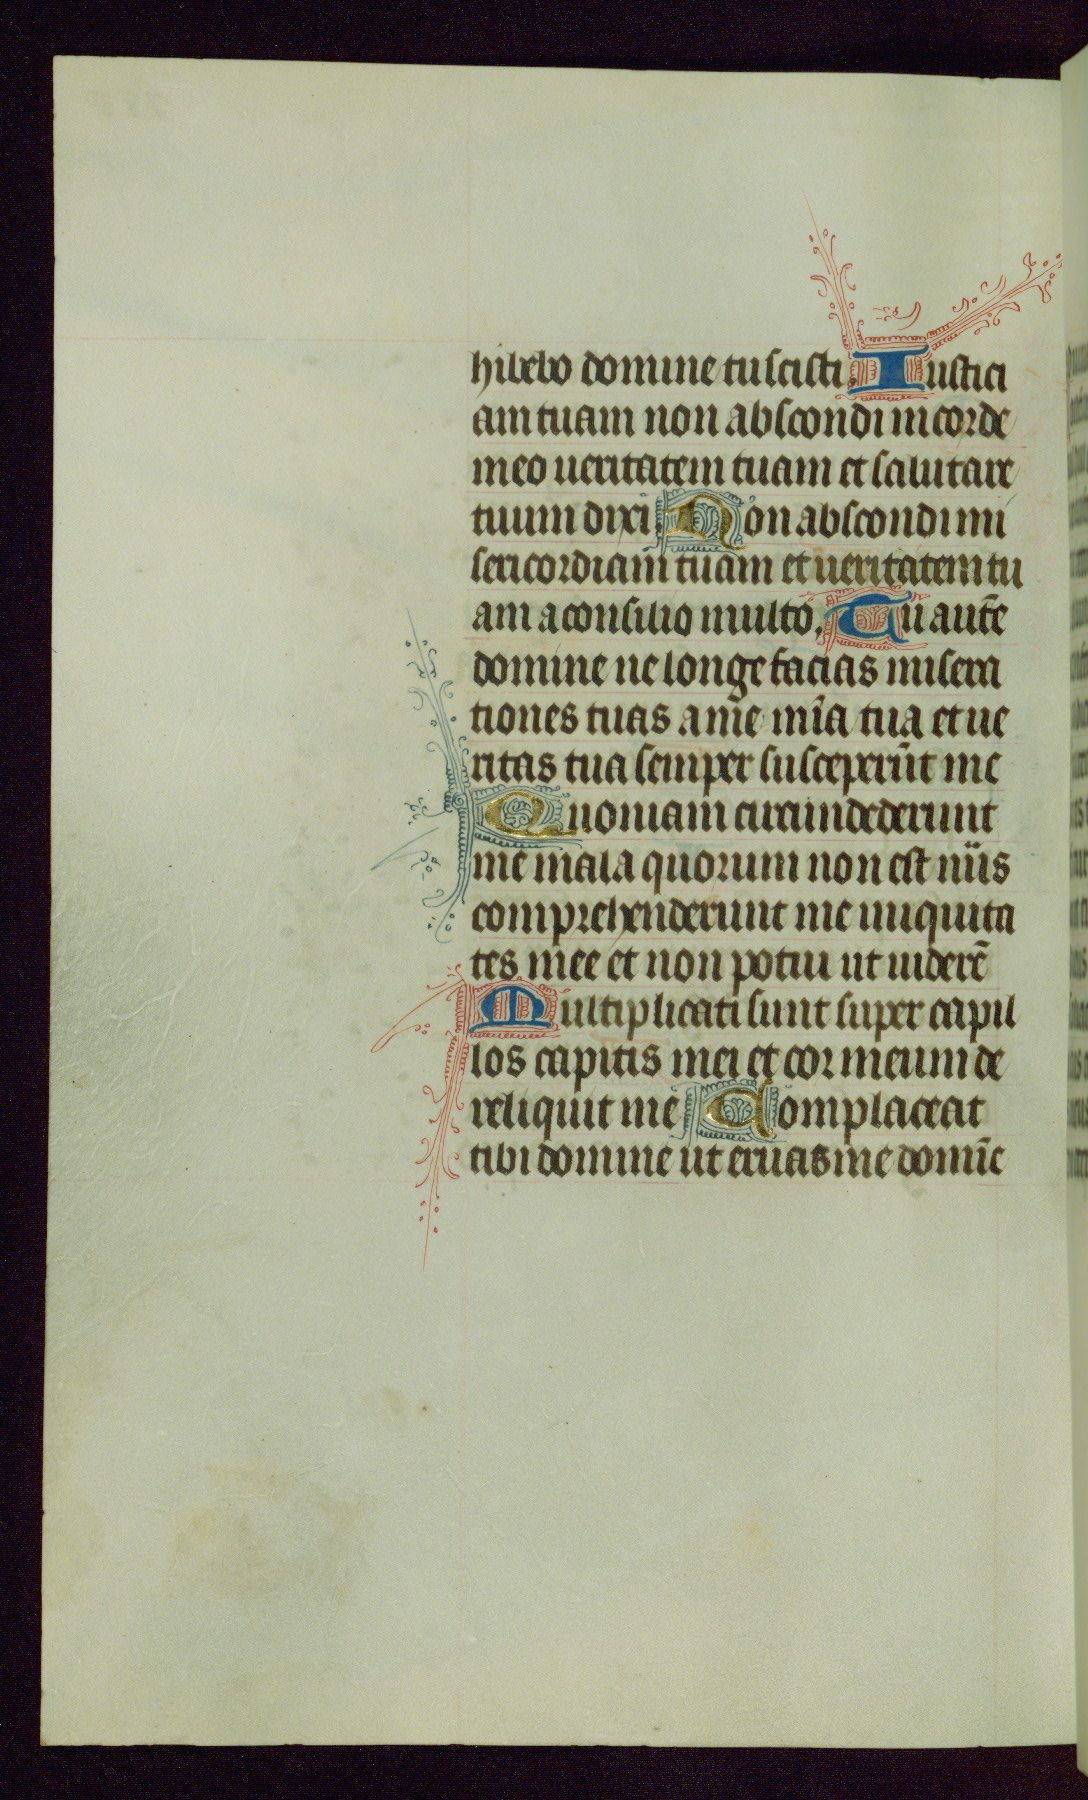 hibebo domine tu scisti. Iustici
am tuam non abscondi in corde
meo ueritatem tuam et salutare
tuum dixi. Non abscondi mi
sericordiam tuam et ueritatem tu
am a consilio multo. Tu autē
domine ne longe facias misera
tiones tuas a me mīa tua et ue
ritas tua semper susceperūt me
Quoniam circumdederunt
me mala quorum non est nūs
comprehenderunt me iniquita
tes mee et non potui ut uiderē
Multiplicati sunt super capil
los capitis mei et cor meum de
reliquit me Complaceat
tibi domine ut eruas me domīe